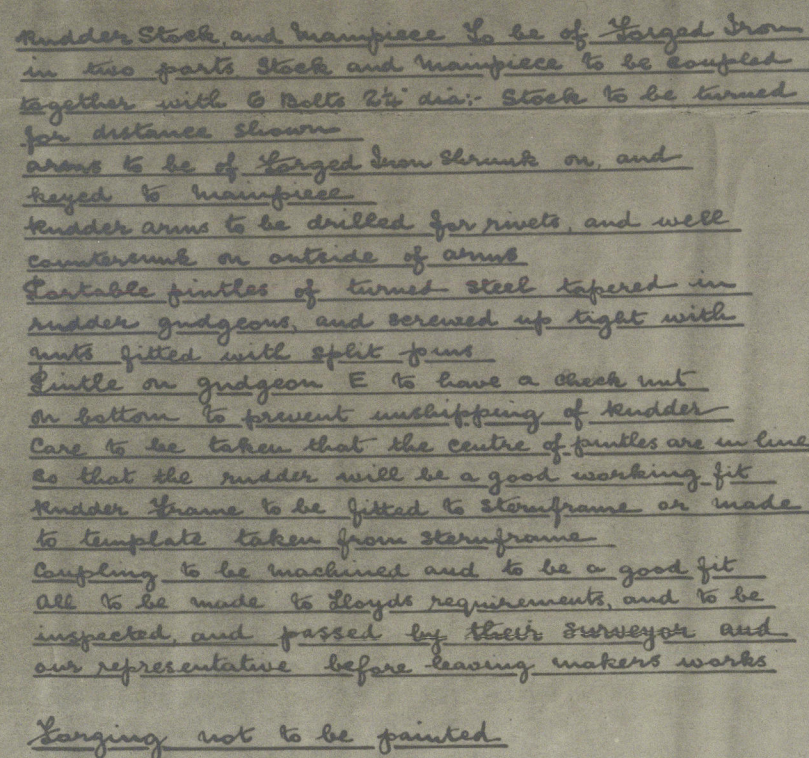 Rudder Stock, and Mainpiece To be of Forged Iron
in two parts Stock and Mainpiece to be coupled
together with 6 Bolts 2¼" dia:- Stock to be turned
for distance shown
arms to be of Forged Iron Shrunk on, and
keyed to Mainpiece
Rudder arms to be drilled for rivets, and well
countersunk on outside of arms
Portable pintles of turned steel tapered in
rudder gudgeons, and screwed up tight with
nuts fitted with split pins
Pintle on gudgeon E to have a check nut
on bottom to prevent unshipping of Rudder
Care to be taken that the centre of pintles are in line
so that the rudder will be a good working fit
Rudder Frame to be fitted to Sternframe or made
to template taken from Sternframe
Coupling to be machined and to be a good fit
All to be made to Lloyds requirements, and to be
inspected, and passed by their Surveyor and
our representative before leaving makers works
Forging not to be painted